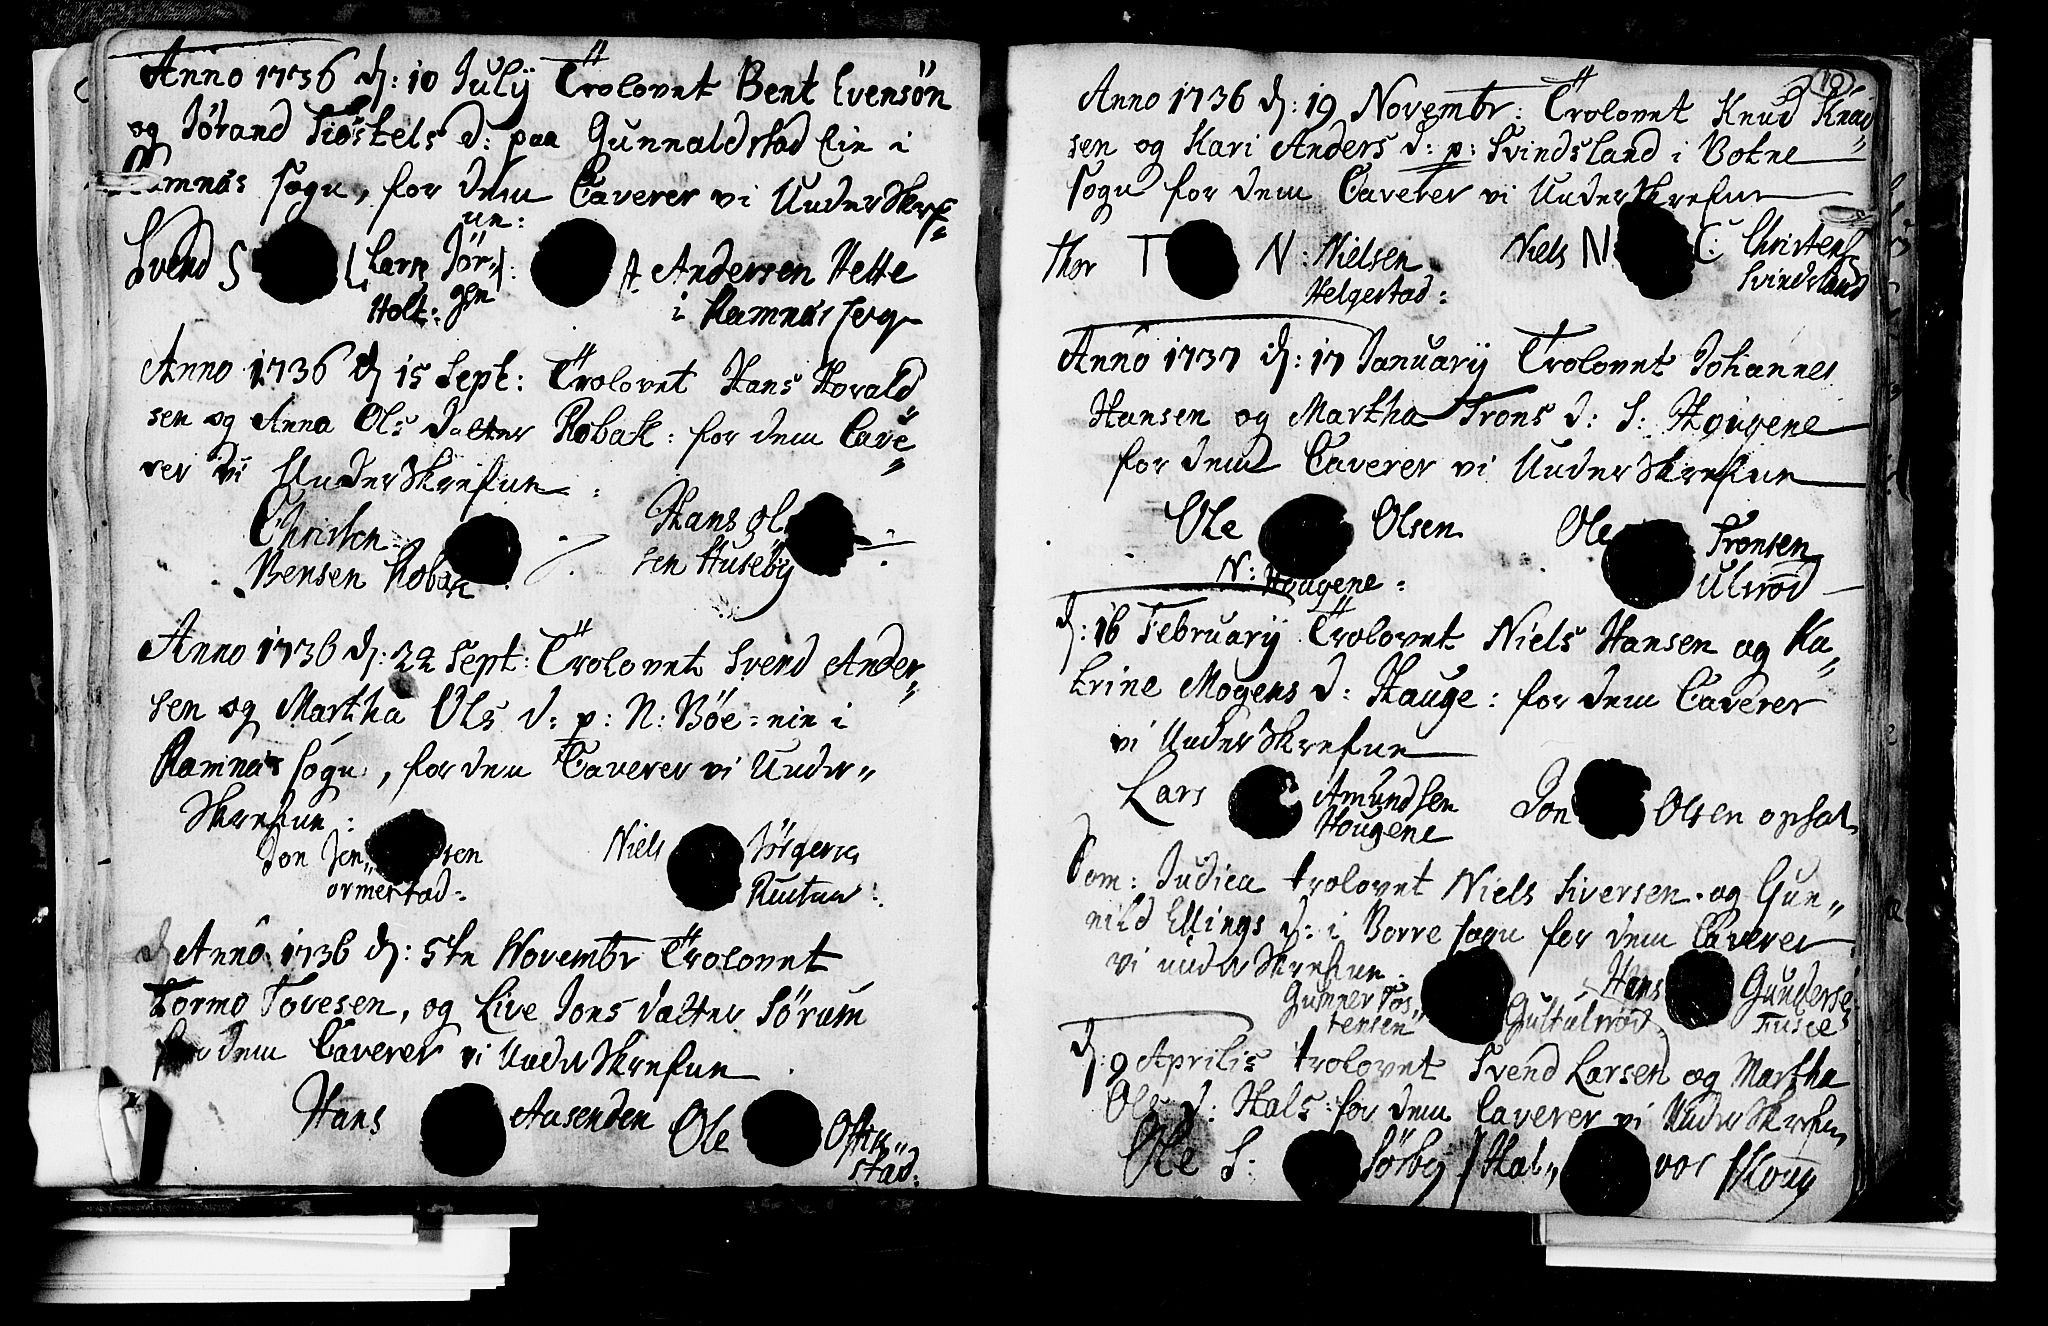 Anno 1736 d: 10 Julÿ Trolovet Bent Evensön
og Jörand Tiöstels d: paa Gunnaldstad Eie i
Ramnäs sogn, for dem Caverer vi UnderSkref„
ne:
Svend S L Lars Jör„ A Andersen Hette
Holt: gen i Ramnäs sogn
Anno 1736 d 15 Sept: Trolovet Hans Horald„
sen og Anna Ols datter Robak: for dem Cave„
rer vi UnderSkrefne :
Christen Hans Ol
Bensen Robak sen Huseby
Anno 1736 d: 22 Sept: Trolovet Svend Ander„
sen og Martha Ols d: p: N: Böe = eie i
Ramnäs sogn, for dem Caverer vi Under„
Skrefne :
Jon Jen„ sen Niels Jörgens
ormestad :
d Anno 1736 d: 5te Novembr Trolovet
Tormo Tovesen, og Live Jons datter Sörum
for dem Caverer vi UnderSkrefne
Hans Aasenden Ole
stad:
10
Anno 1736 d: 19 Novembr: Trolovet Knud Knud„
sen og Kari Anders d: p: Svindsland i Botne
sogn for dem Caverer vi UnderSkrefne
Thor T N: Nielsen Niels N C: Christens
Helgestad : Svindsland
Anno 1737 d: 17 Januarÿ Trolovet Johannes
Hansen og Martha Trons d: S: Hougene
for dem Caverer vi UnderSkrefne
Ole Olsen Ole Tronsen
N: Hougene : Ulsrod
d: 16 Februarÿ Trolovet Niels Hansen og Ka„
trine Mogens d: Hauge : for dem Caverer
vi UnderSkrefne
Lars Amundsen Jon Olsen opsal
Hougene
Dom: Judica trolovet Niels Siversen og Gun„
nild Ellings d: i Borre sogn for dem Caverer
vi underSkrefne .
Gunner Tos„ Hans Gunderse
tensen Gultulsröd
d: 9 Aprilis trolovet Svend Larsen og Martha
Ols d: Hals : for dem Caverer vi UnderSkrefne
Ole S: Sörby Hal„ vor Skoug